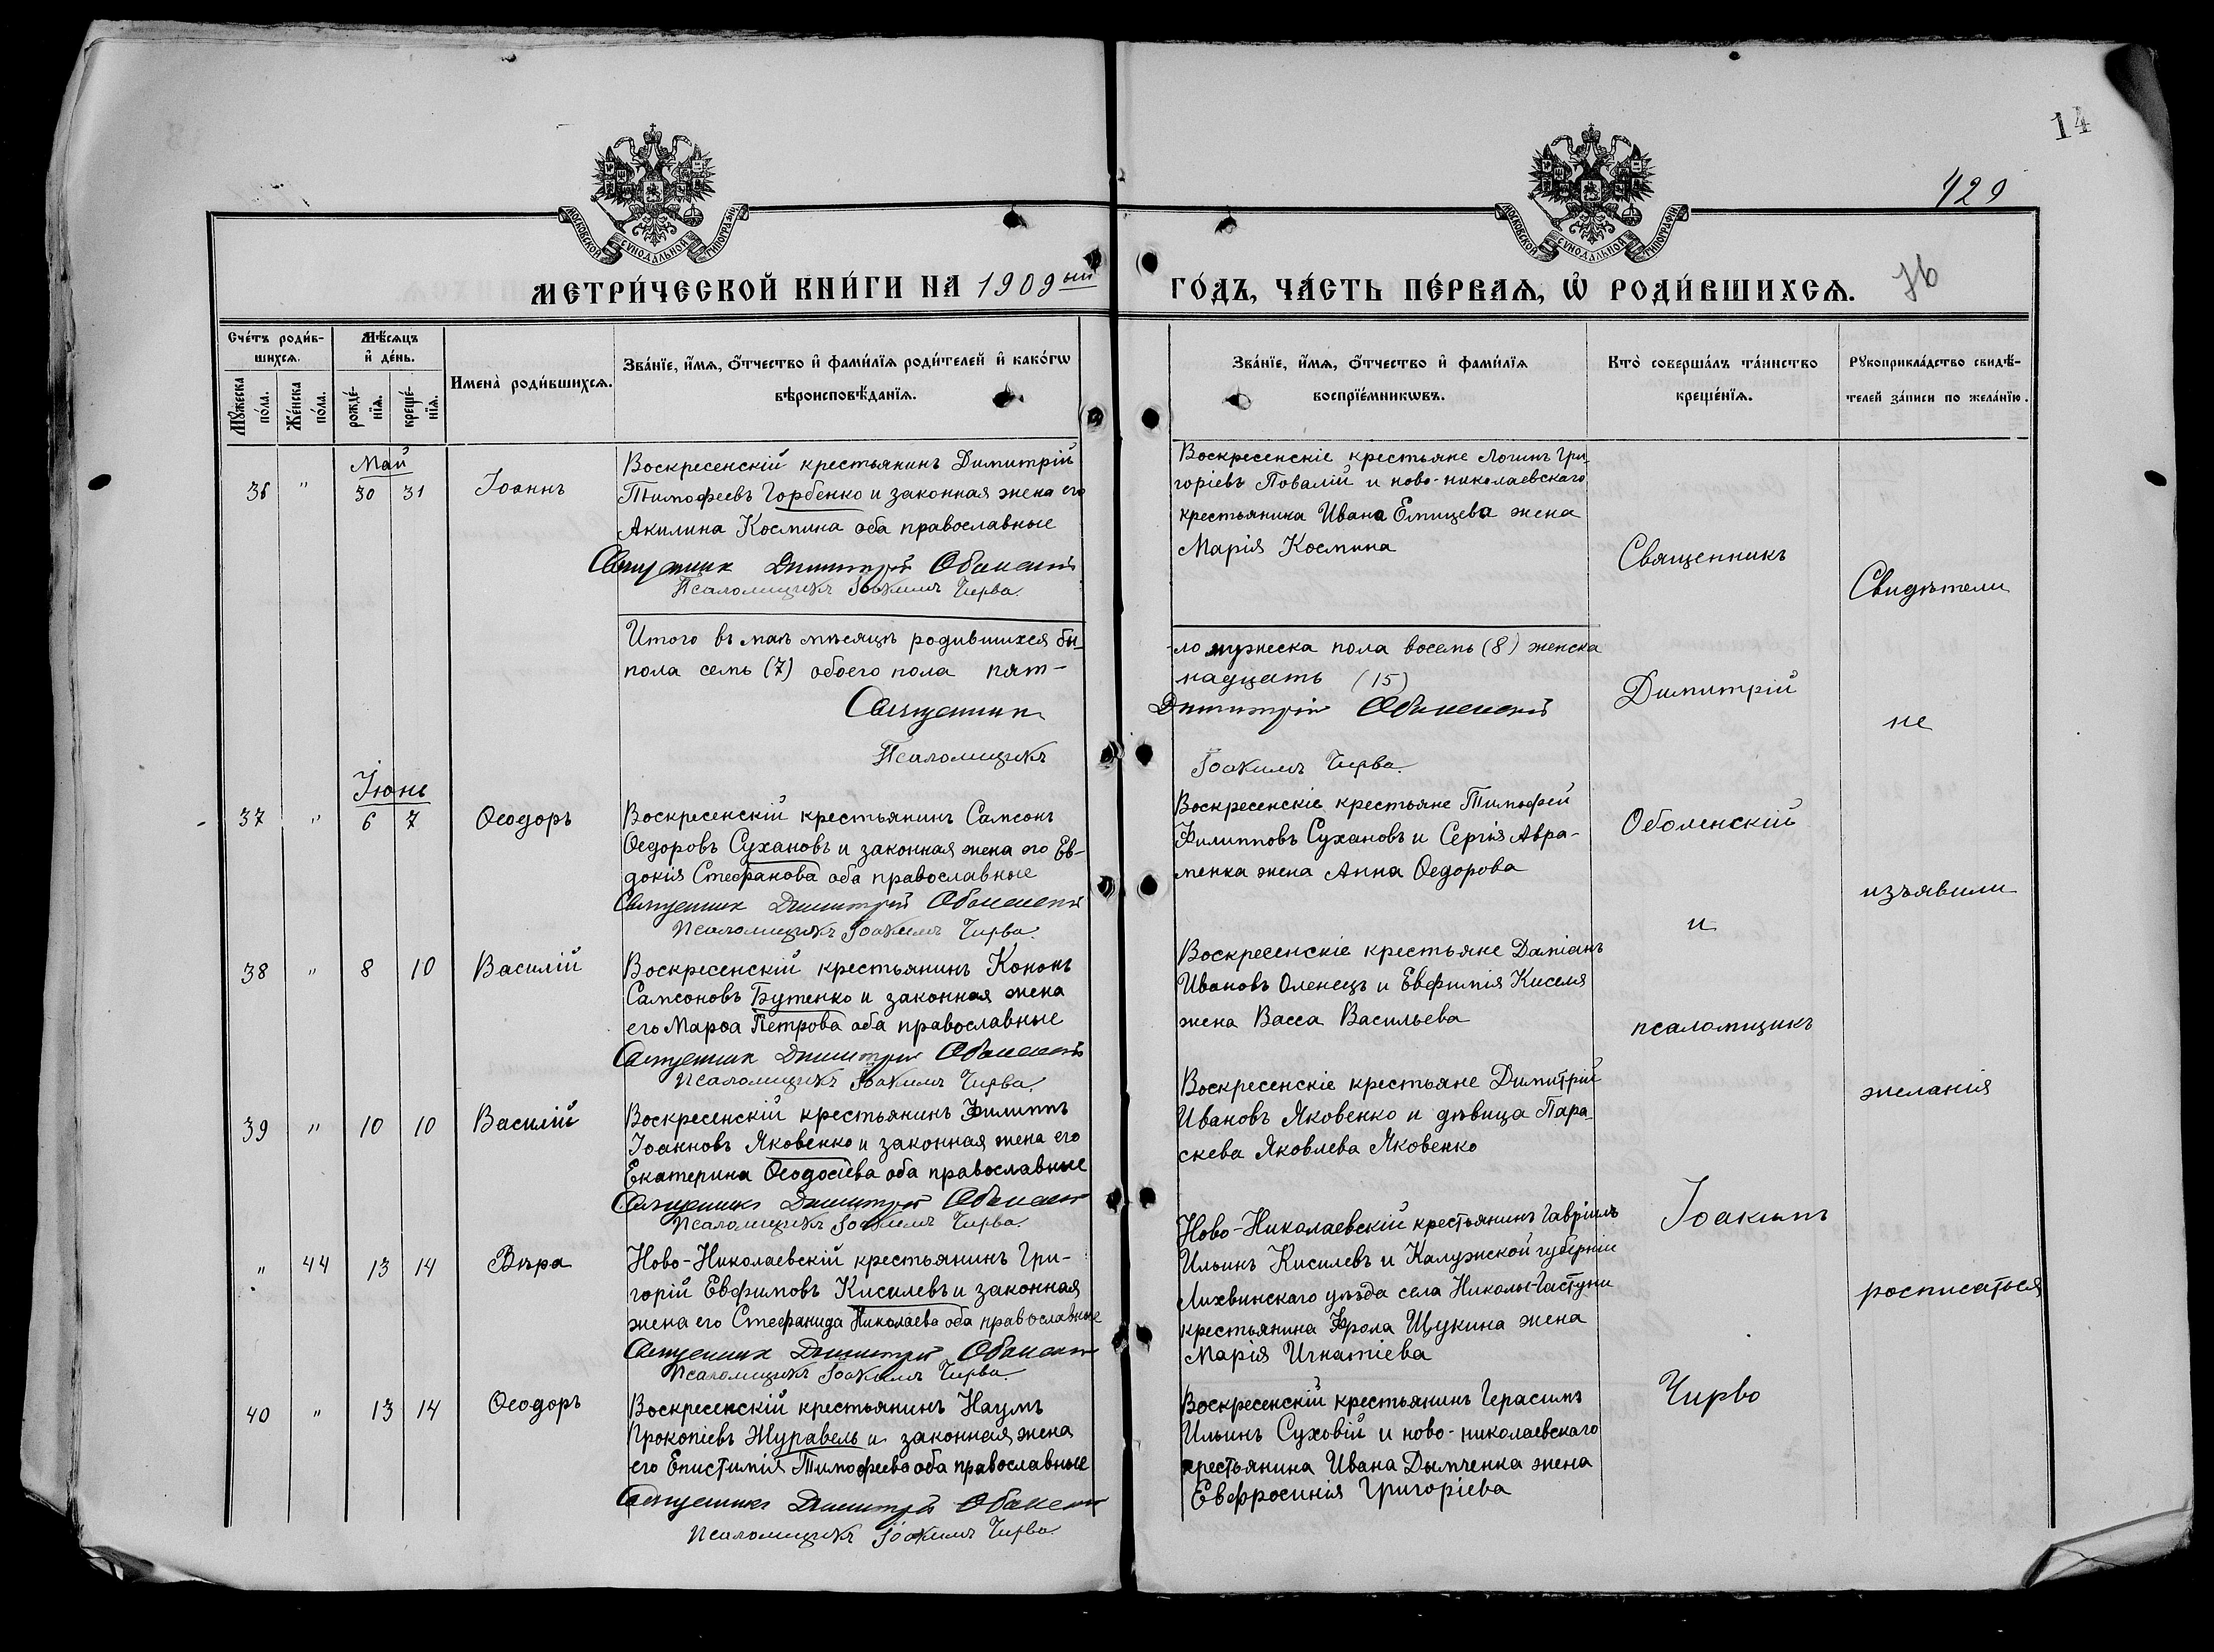 14
429
МОСКОВСКОЙ СУНОДАЛЬНОЙ ТИПОГРАФІИ
МОСКОВСКОЙ СУНОДАЛЬНОЙ ТИПОГРАФІИ
МЕТРИ́ЧЕСКОЙ КНИ́ГИ НА 1909 ый
ГО́ДЪ, ЧА́СТЬ ПЕ́РВАѦ, Ѽ РОДИ́ВШИХСѦ.
Сче́тъ роди́в-
шихсѧ.
Мꙋ́жеска по́ла.
Же́нска по́ла.
Мѣ́сѧцъ
и҆ де́нь.
рожде́-
нїѧ.
креще́-
нїѧ.
Имена̀ роди́вшихсѧ.
Зва́нїе, и҆́мѧ, ѻ҆́тчество и҆ фами́лїѧ роди́телей и҆ како́гѡ
вѣроисповѣ́данїѧ.
Зва́нїе, и҆́мѧ, ѻ҆́тчество и҆ фами́лїѧ
воспрїе́мникѡвъ.
Кто̀ соверша́лъ та́инство
креще́нїѧ.
Рꙋкоприкла́дство свидѣ́-
телей за́писи по жела́нїю.
Май
36 " 30 31 Іоаннъ
Воскресенскій крестьянинъ Димитрій
Тимофеевъ Горбенко и законная жена его
Акилина Космина оба православные
Священник Димитрій Оболенскій
Псаломщикъ Іоакимъ Чирва.
Воскресенскіе крестьяне Логинъ Гри-
горіевъ Повалій и ново-николаевскаго
крестьянина Ивана Емицева жена
Марія Космина
Итого въ маѣ мѣсяцѣ родившихся бы-
ло мужеска пола восемь (8) женска
пола семь (7) обоего пола пят-
надцать (15)
Священник Димитрій Оболенскій
Псаломщикъ Іоакимъ Чирва.
Іюнь
37 " 6 7 Ѳеодоръ
Воскресенскій крестьянинъ Самсонъ
Ѳедоровъ Сухановъ и законная жена его Ев-
докія Стефанова оба православные
Священник Димитрій Оболенскій
Псаломщикъ Іоакимъ Чирва.
Воскресенскіе крестьяне Тимофей
Филипповъ Сухановъ и Сергія Авра-
менка жена Анна Ѳедорова
38 " 8 10 Василій
Воскресенскій крестьянинъ Кононъ
Самсоновъ Бутенко и законная жена
его Марѳа Петрова оба православные
Священник Димитрій Оболенскій
Псаломщикъ Іоакимъ Чирва.
Воскресенскіе крестьяне Даміанъ
Ивановъ Оленецъ и Евфимія Киселя
жена Васса Васильева
39 " 10 10 Василій
Воскресенскій крестьянинъ Филиппъ
Іоанновъ Яковенко и законная жена его
Екатерина Ѳеодосіева оба православные
Священникъ Димитрій Оболенскій
Псаломщикъ Іоакимъ Чирва.
Воскресенскіе крестьяне Димитрій
Ивановъ Яковенко и дѣвица Пара-
скева Яковлева Яковенко
" 44 13 14 Вѣра
Ново-Николаевскій крестьянинъ Гри-
горій Евфимовъ Кисилевъ и законная
жена его Стефанида Николаева оба православные
Священник Димитрій Оболенскій
Псаломщикъ Іоакимъ Чирва.
Ново-Николаевскій крестьянинъ Гавріилъ
Ильинъ Кисилевъ и Калужской губерніи
Лихвинскаго уѣзда села Николы-Гастуни
крестьянина Фрола Щукина жена
Марія Игнатіева
40 " 13 14 Ѳеодоръ
Воскресенскій крестьянинъ Наумъ
Прокопіевъ Журавель и законная жена
его Епистимія Тимофеева оба православные
Священникъ Димитрій Оболенскій
Псаломщикъ Іоакимъ Чирва.
Воскресенскій крестьянинъ Герасимъ
Ильинъ Суховій и ново-николаевскаго
крестьянина Ивана Дымченка жена
Евфросинія Григоріева
Священникъ
Димитрій
Оболенскій
и
псаломщикъ
Іоакимъ
Чирво
Свидѣтели
не
изъявили
желанія
росписаться